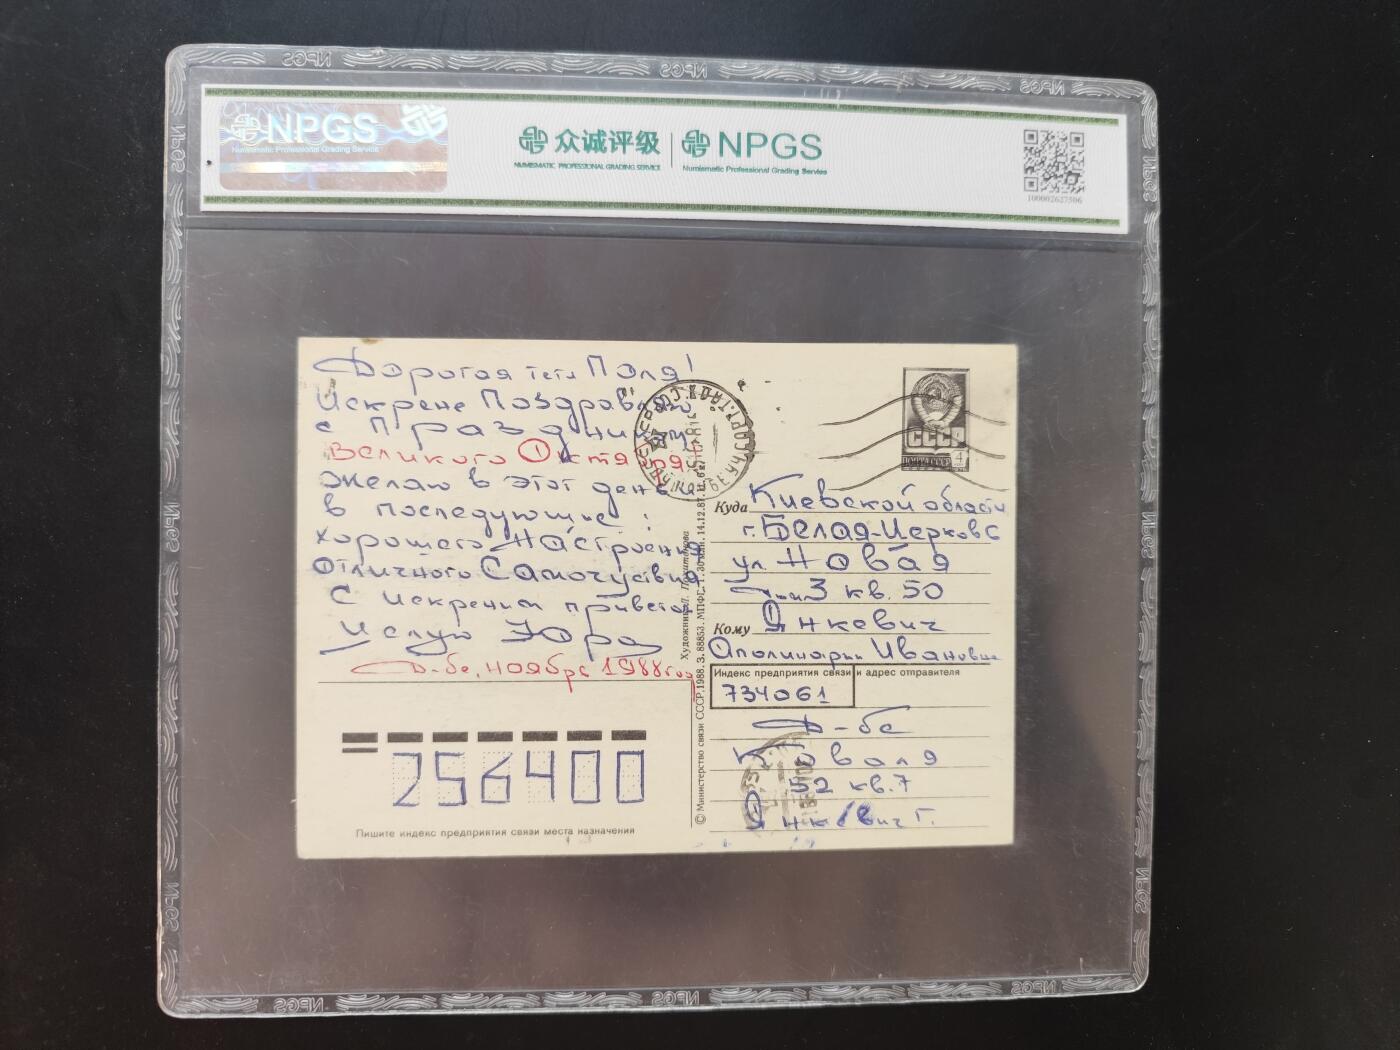 NPGS
Numismatic Professional Grading Service
众诚评级
NUMISMATIC PROFESSIONAL GRADING SERVICE
NPGS
Numismatic Professional Grading Service
100002627506
Дорогая тетя Поля!
Искрене Поздравляю
с праздником
Великого Октября
Желаю в этот день и
в последующие:
хорошего Настроения
Отличного Самочуствия
С искреним приветом
Целую Юра
Д-бе, ноябрь 1988 год
256400
Пишите индекс предприятия связи места назначения
© Министерство связи СССР, 1988. З. 88853. МПФГ.
14.12.87.
Художник
СССР
ПОЧТА СССР
4
Куда Киевской области
г. Белая-Церковь
ул Новая
3 кв. 50
Кому Янкевич
Аполинарии Ивановне
Индекс предприятия связи и адрес отправителя
734061
Д-бе
Коваля
52 кв. 7
Янкевич Г.